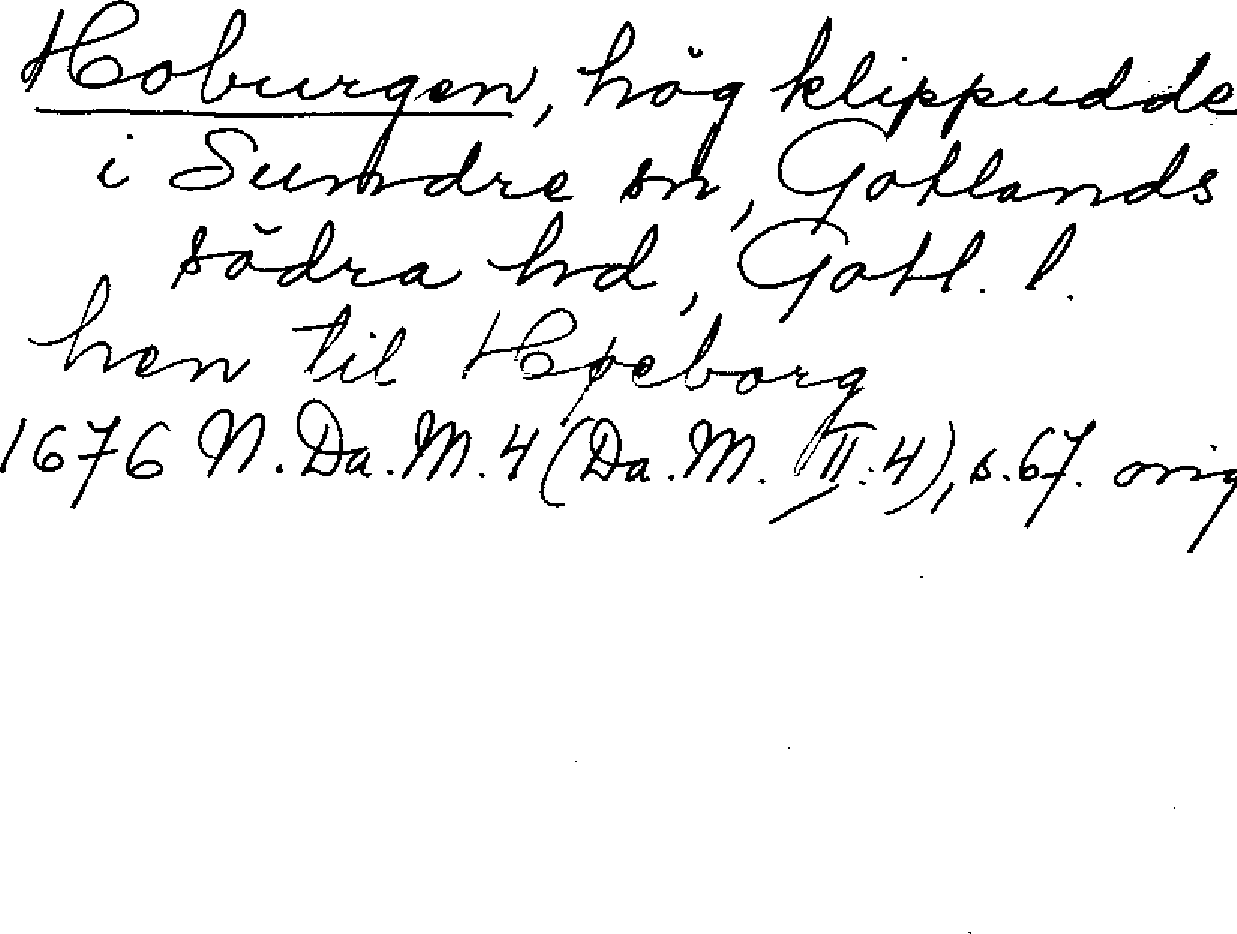 Hoburgen, hög klippudde
i Sundre sn, Gotlands
södra hd, Gotl. l.
hen til Høeborg
1676 N. Da. M. 4 (Da. M. II:4), s. 67. orig